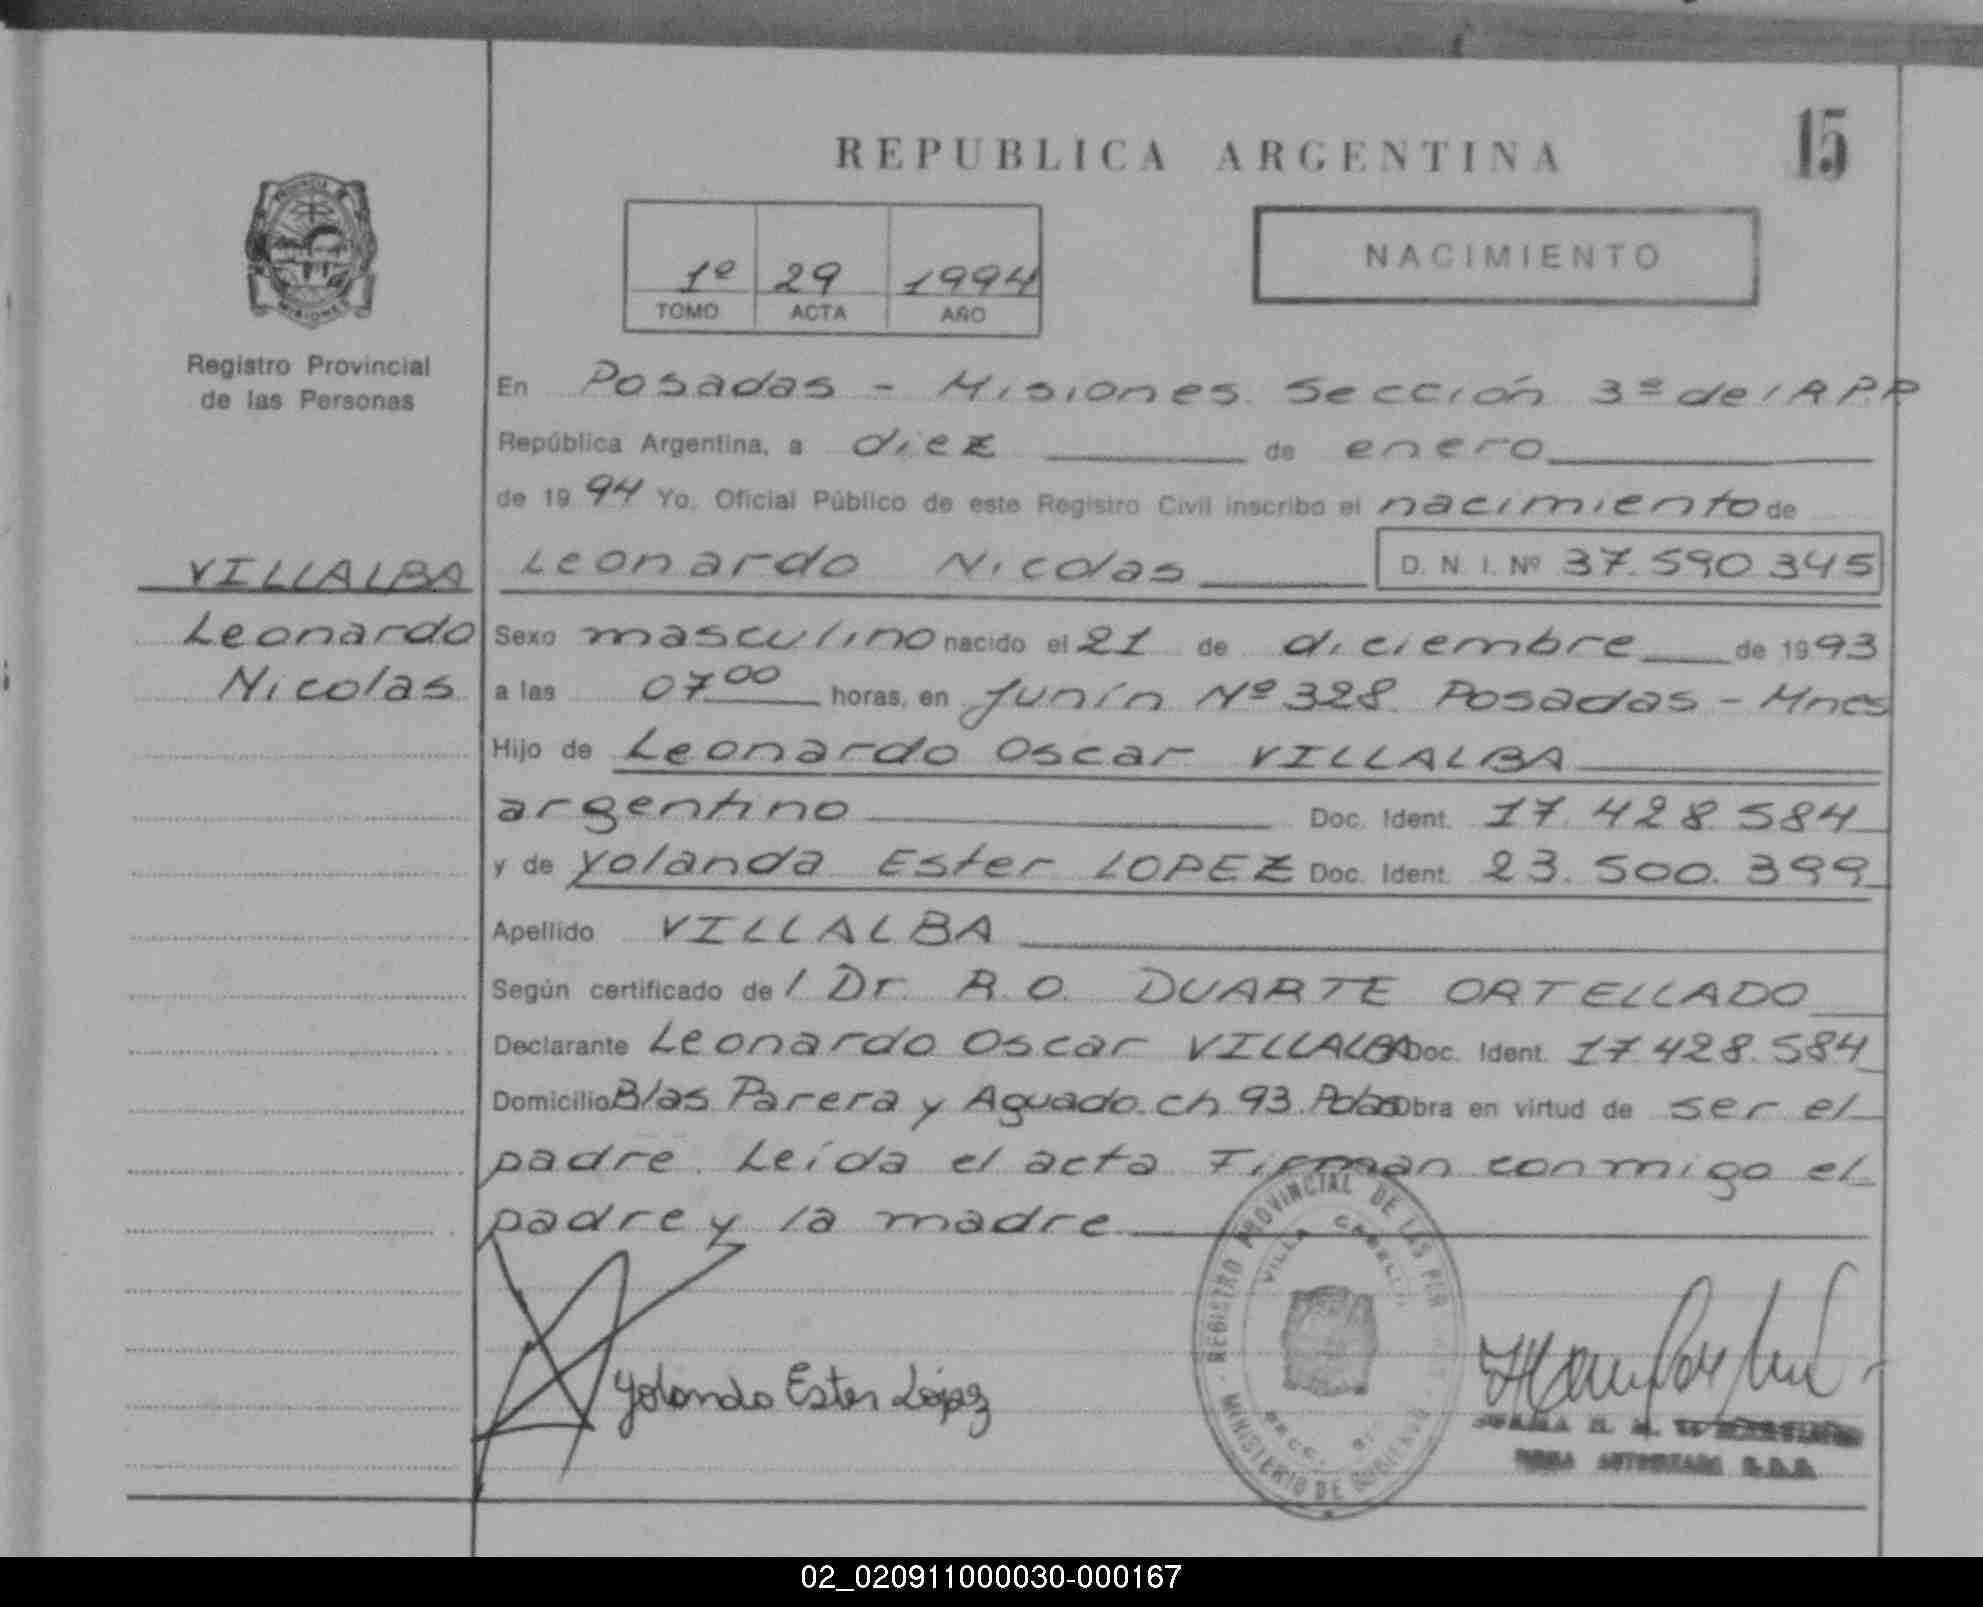 REPUBLICA ARGENTINA
15
1º 29 1994
TOMO ACTA AÑO
NACIMIENTO
PROVINCIA DE
MISIONES
Registro Provincial
de las Personas
En Posadas - Misiones. Sección 3ª del R.P.P
República Argentina, a diez de enero
de 1994 Yo, Oficial Público de este Registro Civil inscribo el nacimiento de
VILLALBA
Leonardo Nicolas D. N. I. Nº 37.590.345
Leonardo
Nicolas
Sexo masculino nacido el 21 de diciembre de 1993
a las 07⁰⁰ horas, en Junín Nº 328. Posadas - Mnes
Hijo de Leonardo Oscar VILLALBA
argentino Doc. Ident. 17.428.584
y de Yolanda Ester LOPEZ Doc. Ident. 23.500.399
Apellido VILLALBA
Según certificado del Dr. R.O. DUARTE ORTELLADO
Declarante Leonardo Oscar VILLALBA Doc. Ident. 17.428.584
Domicilio Blas Parera y Aguado. ch 93. Obra en virtud de ser el
padre. Leída el acta Firman conmigo el
padre y la madre
Yolanda Ester López
REGISTRO PROVINCIAL DE LAS
VILLA
MINISTERIO DE GOBIERNO
AUTORIZADA
02_020911000030-000167